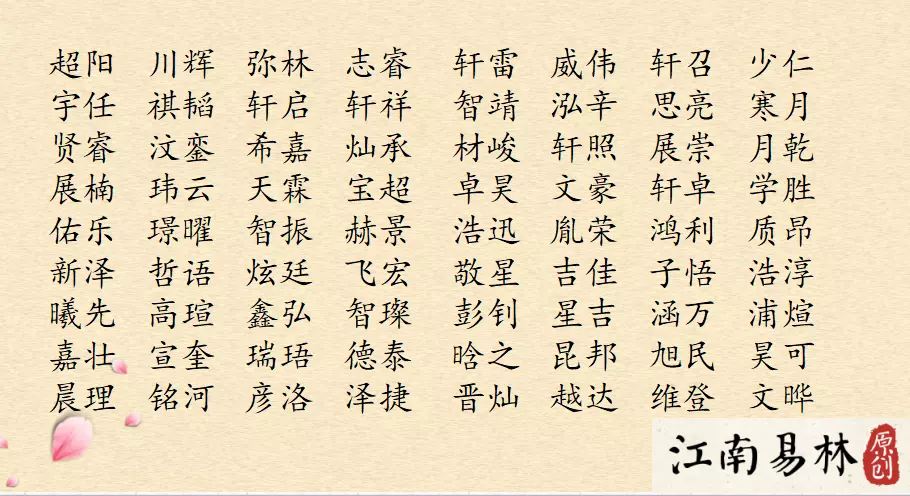 超阳 川辉 弥林 志睿 轩雷 威伟 轩召 少仁
宇任 祺韬 轩启 轩祥 智靖 泓辛 思亮 寒月
贤睿 汶銮 希嘉 灿承 材峻 轩照 展崇 月乾
展楠 玮云 天霖 宝超 卓昊 文豪 轩卓 学胜
佑乐 璟曜 智振 赫景 浩迅 胤荣 鸿利 质昂
新泽 哲语 炫廷 飞宏 敬星 吉佳 子悟 浩淳
曦先 高瑄 鑫弘 智璨 彭钊 星吉 涵万 浦煊
嘉壮 宣奎 瑞珸 德泰 晗之 昆邦 旭民 昊可
晨理 铭河 彦洛 泽捷 晋灿 越达 维登 文晔
江南易林 原创